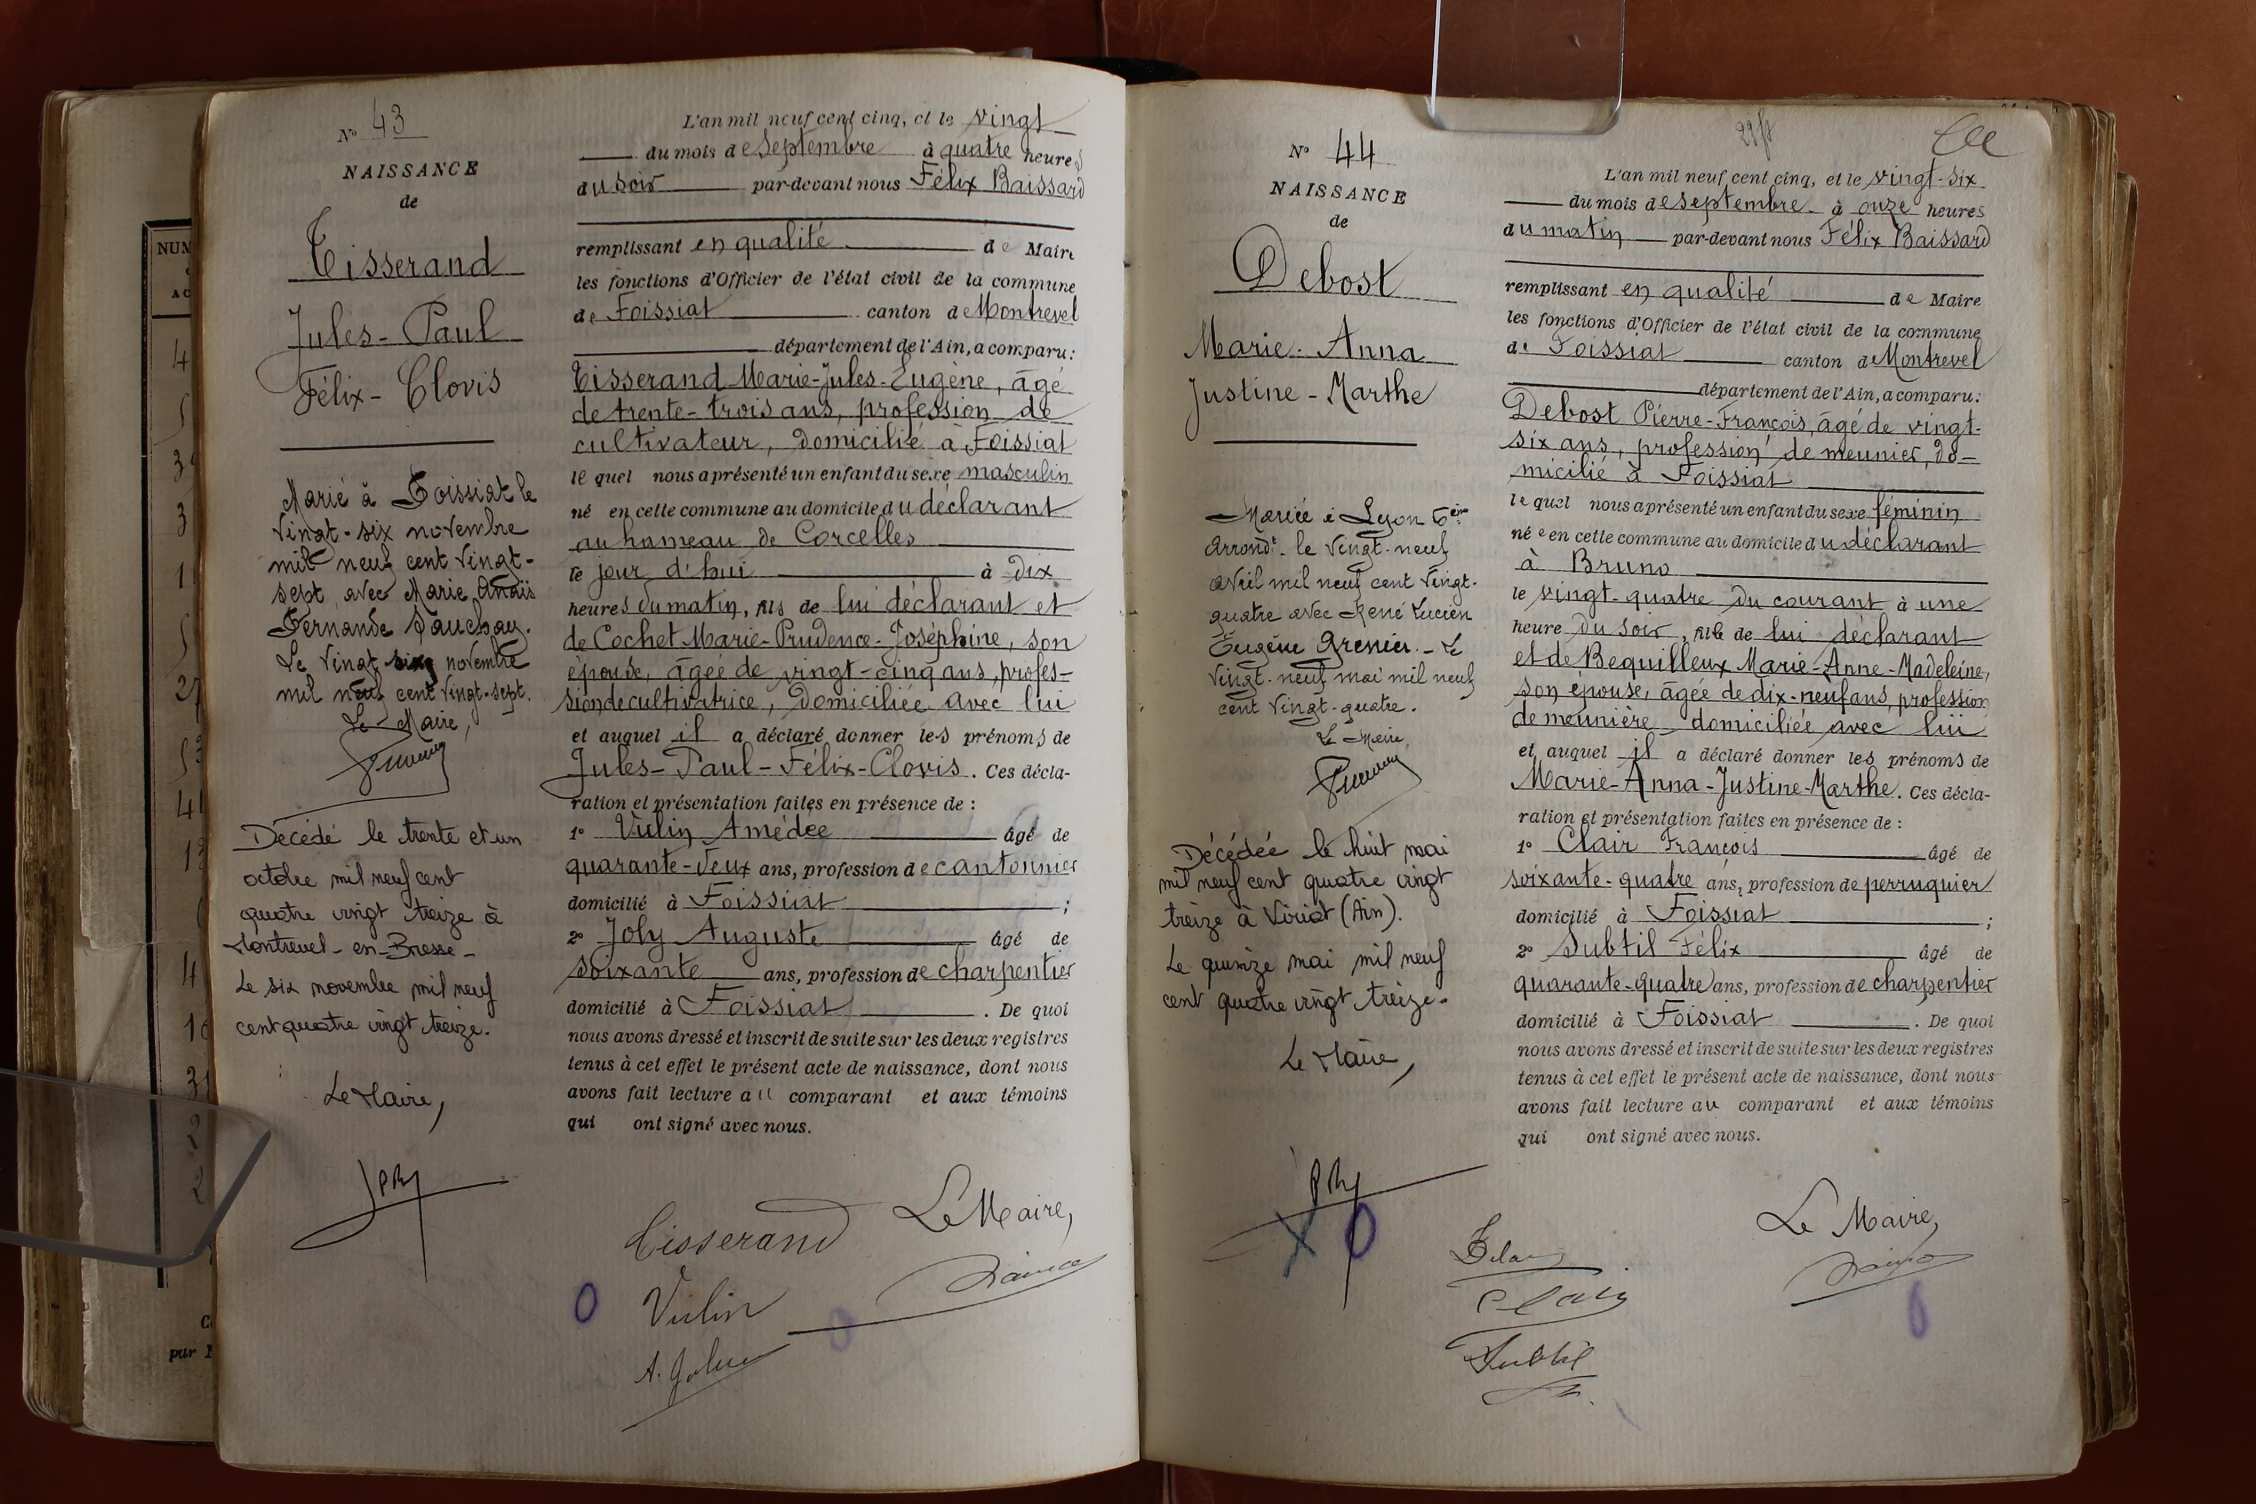 N° 43
NAISSANCE
de
Tisserand
Jules-Paul
Félix-Clovis
Marié à Foissiat le
vingt-six novembre
mil neuf cent vingt-
sept avec Marie Anaïs
Fernande
Le vingt six novembre
mil neuf cent vingt-sept.
Le Maire,
Décédé le trente et un
octobre mil neuf cent
quatre vingt treize à
Montrevel-en-Bresse-
Le six novembre mil neuf
cent quatre vingt treize.
Le Maire,
L'an mil neuf cent cinq, et le vingt
du mois de septembre à quatre heures
du soir par-devant nous Félix Baissard
remplissant en qualité de Maire
les fonctions d'Officier de l'état civil de la commune
de Foissiat canton de Montrevel
département de l'Ain, a comparu:
Tisserand Marie-Jules-Eugène, âgé
de trente-trois ans, profession de
cultivateur, domicilié à Foissiat
lequel nous a présenté un enfant du sexe masculin
né en cette commune au domicile du déclarant
au hameau de Corcelles
le jour d'hui à dix
heures du matin, fils de lui déclarant et
de Cochet Marie-Prudence-Joséphine, son
épouse, âgée de vingt-cinq ans, profes-
sion de cultivatrice, domiciliée avec lui
et auquel il a déclaré donner les prénoms de
Jules-Paul-Félix-Clovis. Ces décla-
ration et présentation faites en présence de :
1° Vulin Amédée âgé de
quarante-deux ans, profession de cantonnier
domicilié à Foissiat ;
2° Joly Auguste âgé de
soixante ans, profession de charpentier
domicilié à Foissiat . De quoi
nous avons dressé et inscrit de suite sur les deux registres
tenus à cet effet le présent acte de naissance, dont nous
avons fait lecture au comparant et aux témoins
qui ont signé avec nous.
Le Maire,
Tisserand
Vulin
N° 44
NAISSANCE
de
Debost
Marie-Anna
Justine-Marthe
Mariée à Lyon 6ème
Arrondt. le vingt-neuf
avril mil neuf cent vingt-
quatre avec René Lucien
Eugène Grenier.- Le
vingt-neuf mai mil neuf
cent vingt-quatre.
Le Maire,
Décédée le huit mai
mil neuf cent quatre vingt
treize à Viriat (Ain).
Le quinze mai mil neuf
cent quatre vingt treize.
Le Maire,
L'an mil neuf cent cinq, et le vingt-six
du mois de septembre à onze heures
du matin par-devant nous Félix Baissard
remplissant en qualité de Maire
les fonctions d'Officier de l'état civil de la commune
de Foissiat canton de Montrevel
département de l'Ain, a comparu:
Debost Pierre-François, âgé de vingt-
six ans, profession de meunier, do-
micilié à Foissiat
lequel nous a présenté un enfant du sexe féminin
née en cette commune au domicile du déclarant
à Bruno
le vingt-quatre du courant à une
heure du soir, fille de lui déclarant
et de Bequilleux Marie-Anne-Madeleine,
son épouse, âgée de dix-neuf ans, profession
de meunière domiciliée avec lui
et auquel il a déclaré donner les prénoms de
Marie-Anna-Justine-Marthe. Ces décla-
ration et présentation faites en présence de :
1° Clair François âgé de
soixante-quatre ans, profession de perruquier
domicilié à Foissiat ;
2° Subtil Félix âgé de
quarante-quatre ans, profession de charpentier
domicilié à Foissiat . De quoi
nous avons dressé et inscrit de suite sur les deux registres
tenus à cet effet le présent acte de naissance, dont nous
avons fait lecture au comparant et aux témoins
qui ont signé avec nous.
Le Maire,
Clair
Subtil